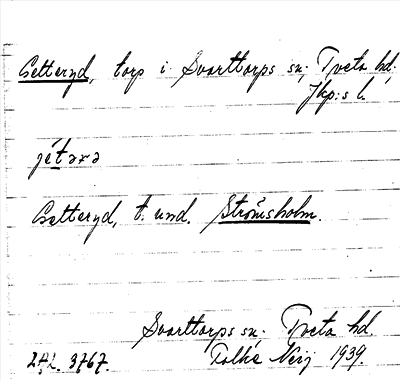 Getteryd, torp i Svarttorps sn; Tveta hd,
Jkp:s l.
jétərə
Getteryd, t. und. Strömsholm.
Svarttorps sn; Tveta hd.
3767. Folke 1939.